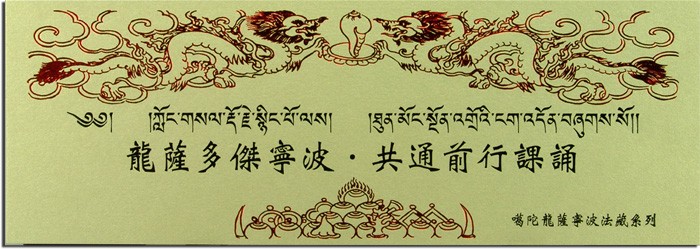 ༄༅། །ཀློང་གསལ་རྡོ་རྗེ་སྙིང་པོ་ལས། །ཐུན་མོང་སྔོན་འགྲོའི་ངག་འདོན་བཞུགས་སོ།།
龍薩多傑寧波·共通前行課誦
噶陀龍薩寧波法藏系列